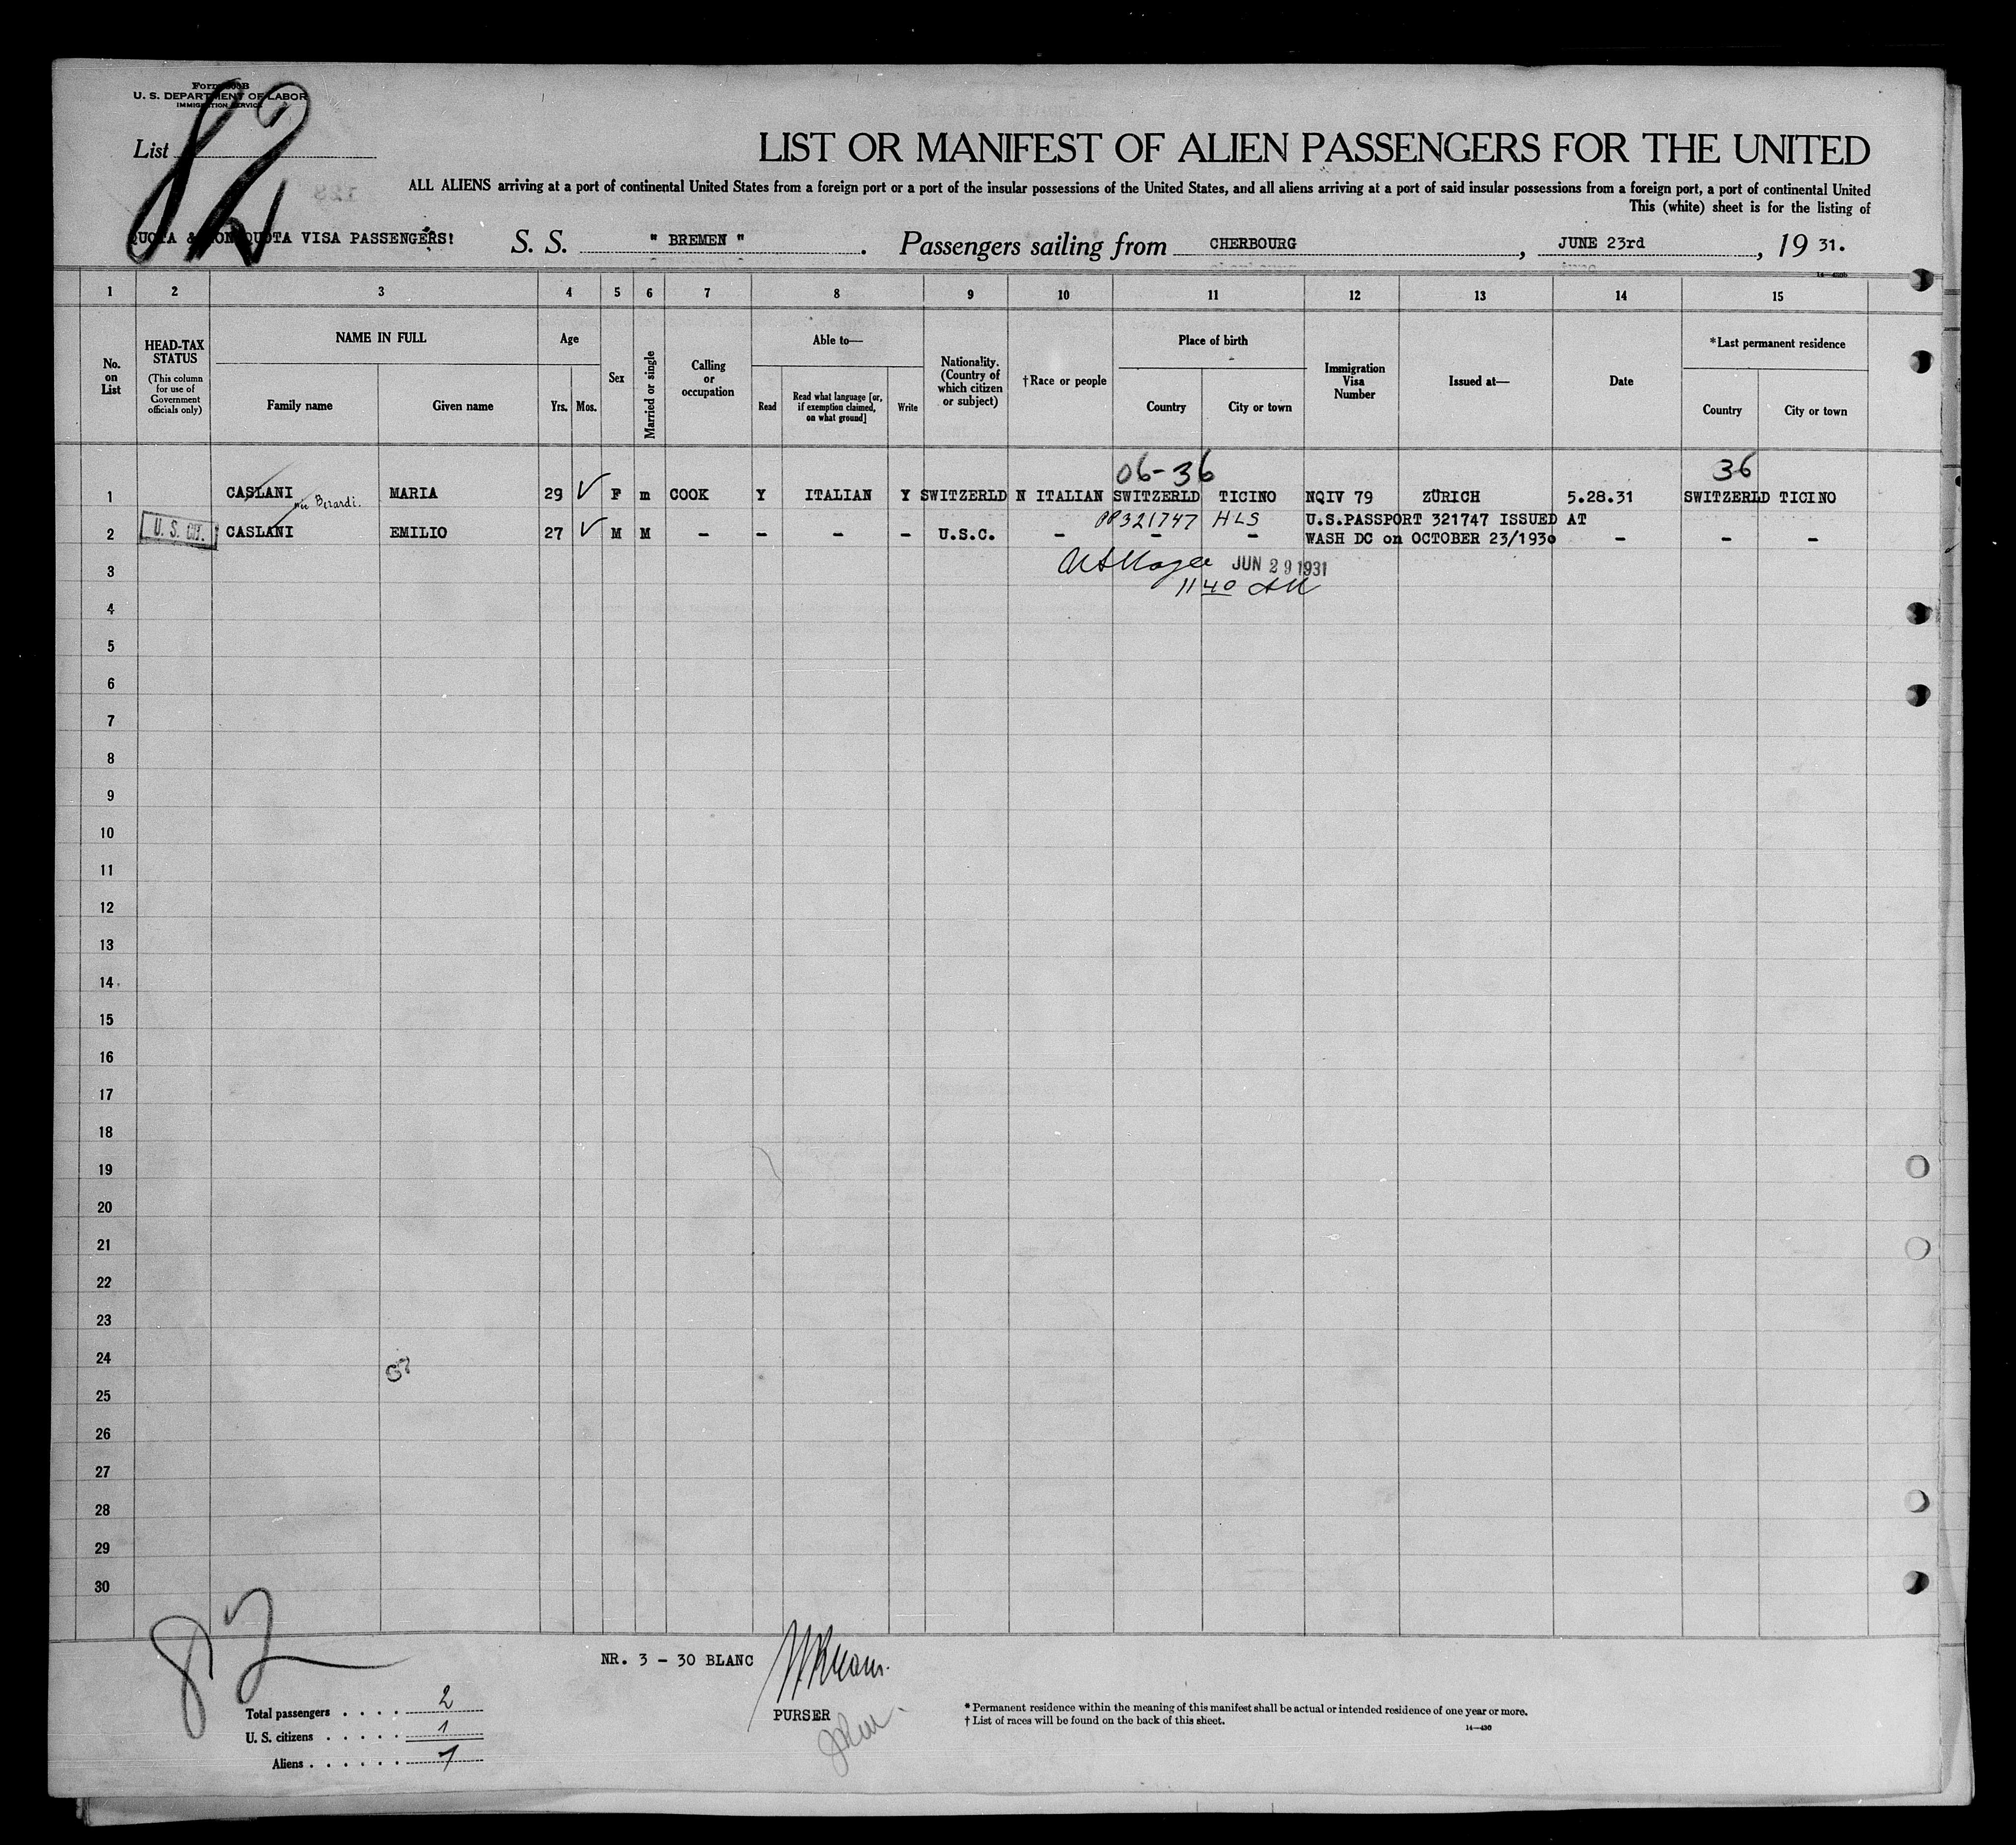 Form 500B
U. S. DEPARTMENT OF LABOR
IMMIGRATION SERVICE
List 82
LIST OR MANIFEST OF ALIEN PASSENGERS FOR THE UNITED
ALL ALIENS arriving at a port of continental United States from a foreign port or a port of the insular possessions of the United States, and all aliens arriving at a port of said insular possessions from a foreign port, a port of continental United
This (white) sheet is for the listing of
QUOTA & NON QUOTA VISA PASSENGERS! S. S. " BREMEN ". Passengers sailing from CHERBOURG, JUNE 23rd, 19 31.
1 2 3 4 5 6 7 8 9 10 11 12 13 14 15
No. on List
HEAD-TAX STATUS
(This column for use of Government officials only)
NAME IN FULL
Family name Given name
Age
Yrs. Mos.
Sex
Married or single
Calling or occupation
Able to—
Read
Read what language [or, if exemption claimed, on what ground]
Write
Nationality. (Country of which citizen or subject)
†Race or people
Place of birth
Country City or town
Immigration Visa Number
Issued at—
Date
*Last permanent residence
Country City or town
06-36 36
1 CASLANI née Berardi. MARIA 29 F m COOK Y ITALIAN Y SWITZERLD N ITALIAN SWITZERLD TICINO NQIV 79 ZÜRICH 5.28.31 SWITZERLD TICINO
PP321747 HLS U.S.PASSPORT 321747 ISSUED AT
2 U. S. CIT. CASLANI EMILIO 27 M M - - - - U.S.C. - - - WASH DC on OCTOBER 23/1930 - - -
3 JUN 29 1931
11 40 AM
4
5
6
7
8
9
10
11
12
13
14
15
16
17
18
19
20
21
22
23
24
25
26
27
28
29
30
82
NR. 3 - 30 BLANC
PURSER
Total passengers . . . . 2
U. S. citizens . . . . . 1
Aliens . . . . . . 1
* Permanent residence within the meaning of this manifest shall be actual or intended residence of one year or more.
† List of races will be found on the back of this sheet.
14—430